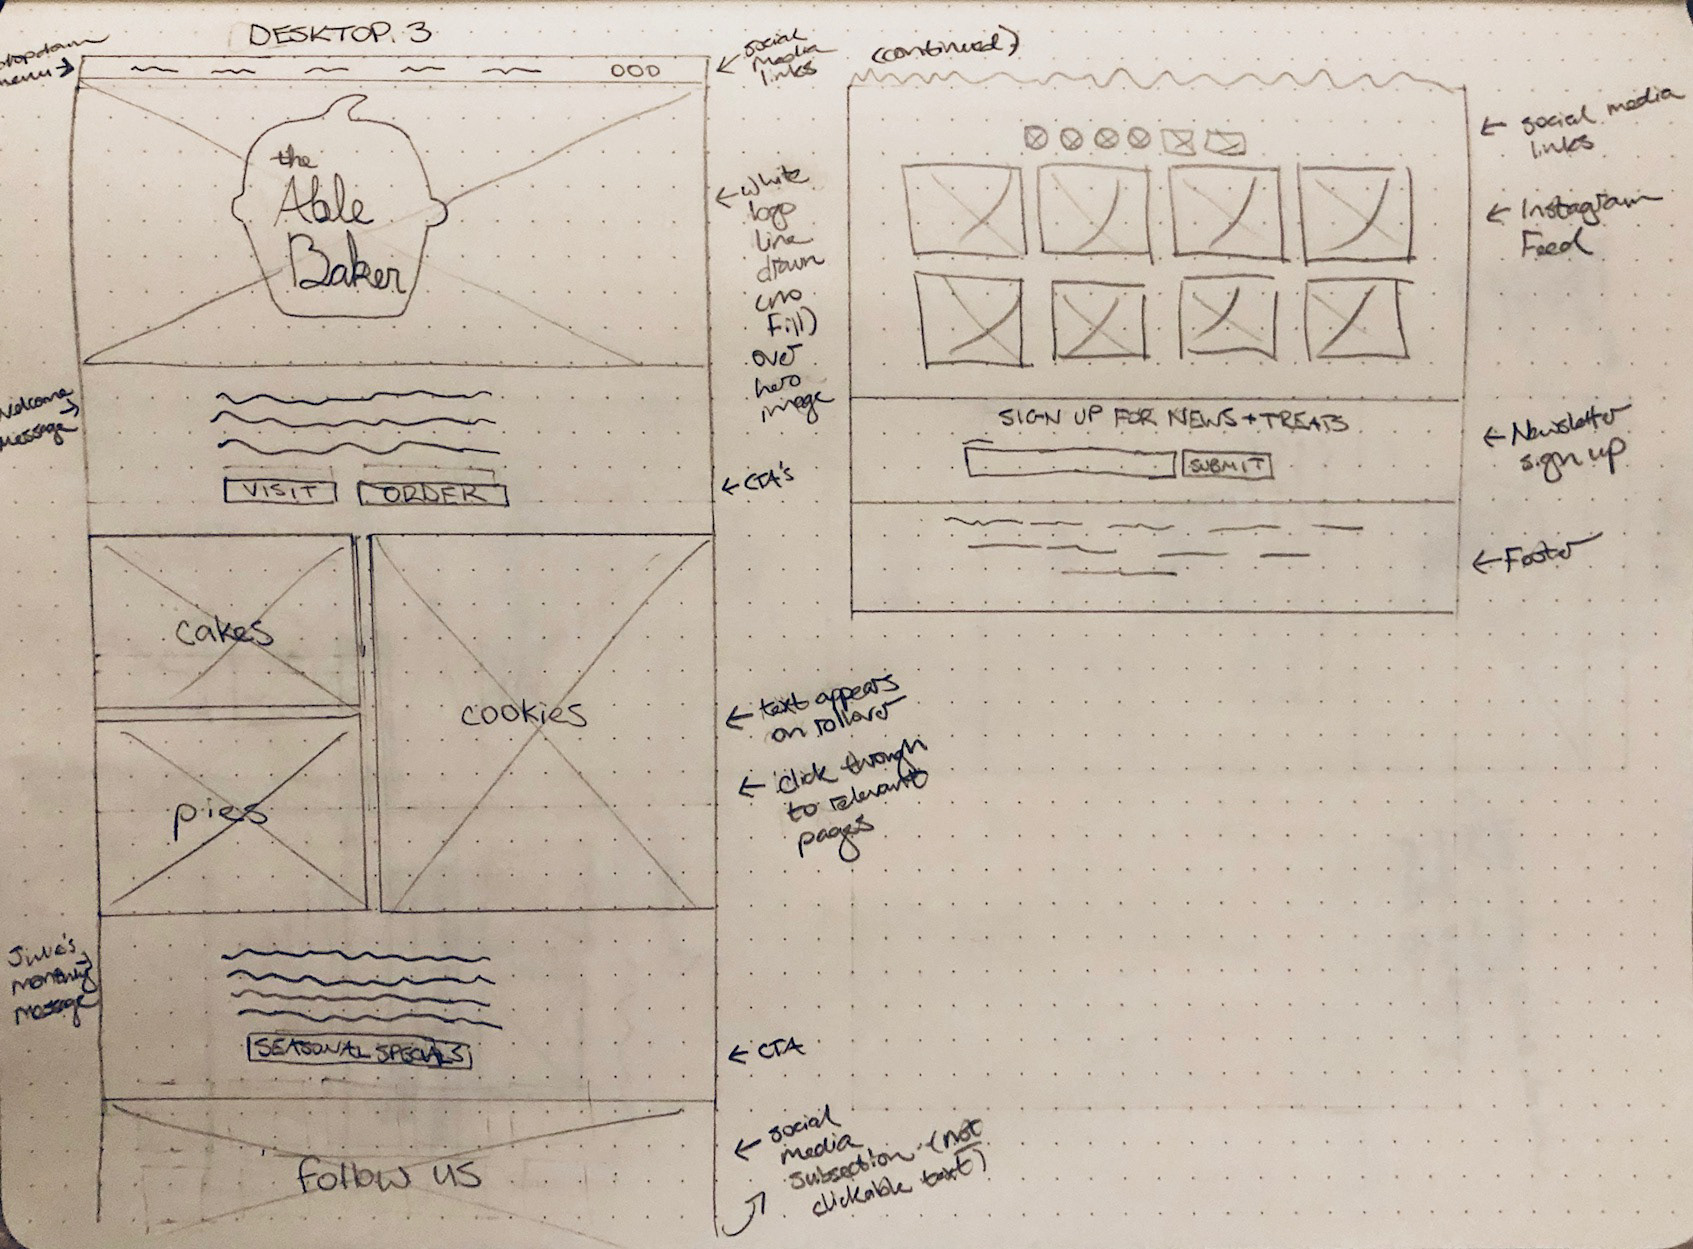 DESKTOP. 3
dropdown
menu →
OOO
← social
media
links
the
Able
Baker
← white
logo
line
drawn
(no
fill)
over
hero
image
welcome
message →
VISIT
ORDER
← CTA's
cakes
cookies
pies
← text appears
on rollover
← click through
to relevant
pages
Julie's
monthly
message →
SEASONAL SPECIALS
← CTA
follow us
← social
media
subsection (not
clickable text)
(continued)
← social media
links
← Instagram
Feed
SIGN UP FOR NEWS + TREATS
SUBMIT
← Newsletter
sign up
← Footer